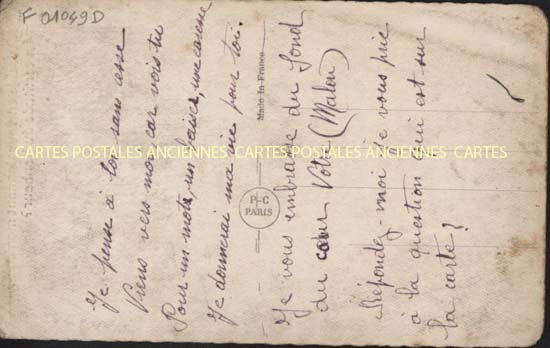 F 01049D
Je pense à toi sans cesse
Viens vers moi car vois tu
Pour un mot, un baiser, une caresse
Je donnerai ma vie pour toi.
Je vous embrasse du fond
du cœur Votre (Malou)
Répondez-moi je vous prie
à la question qui est sur
la carte?
Made in France
P-C
PARIS
CARTES POSTALES ANCIENNES CARTES POSTALES ANCIENNES CARTES